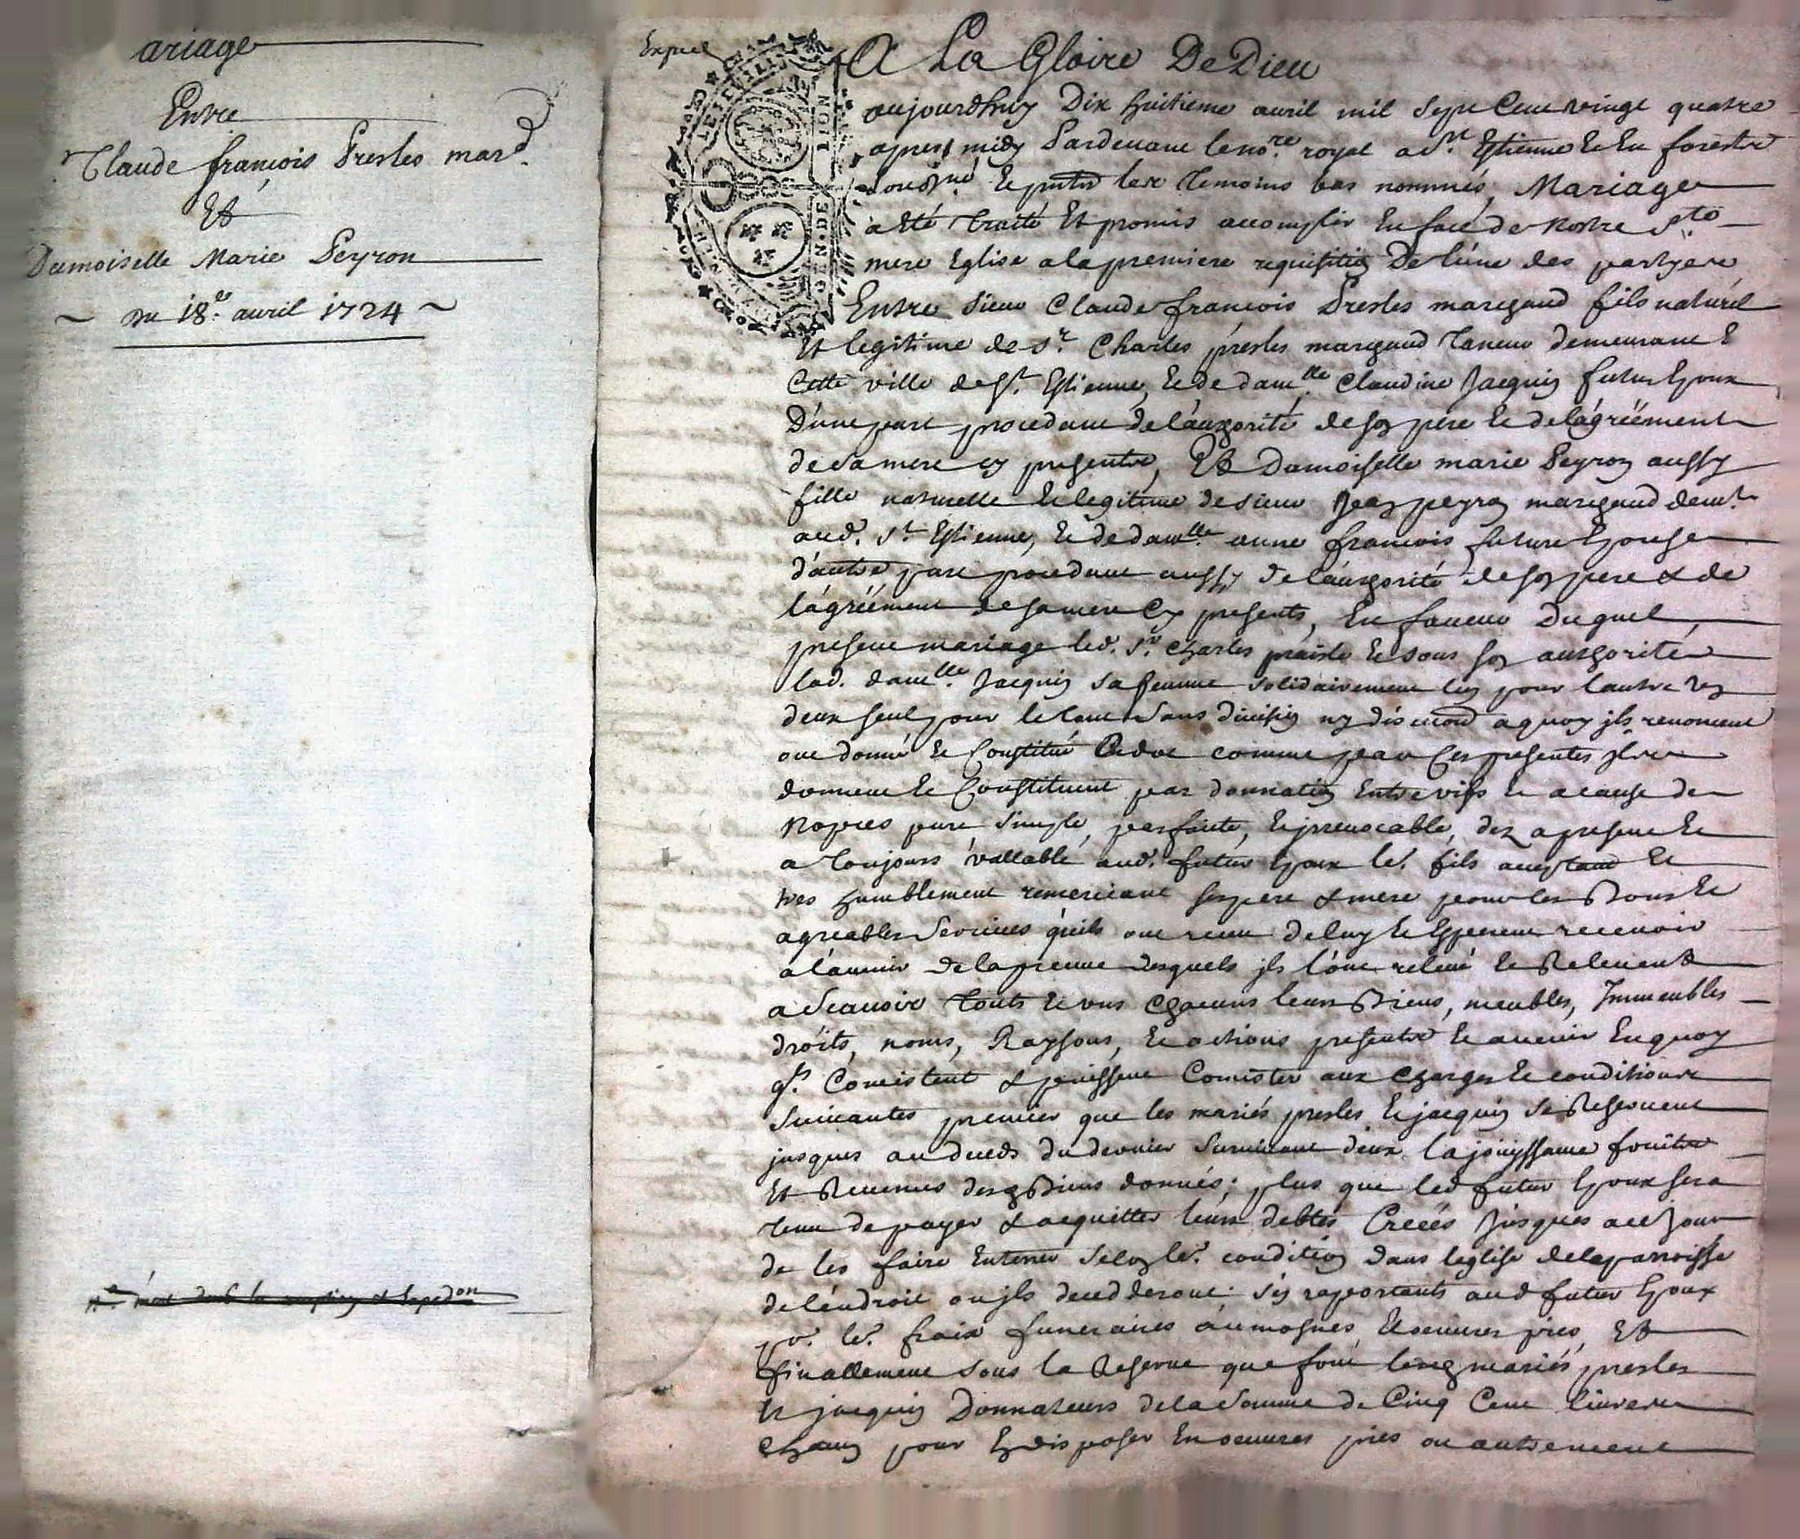 ariage
Entre
Sr Claude francois Presles mard.
Et
Damoiselle Marie Peyron
~ Du 18e. avril 1724 ~
Expiée
A La Gloire De Dieu
aujourdhuy Dix huitieme avril mil sept Cent vingt quatre
apres midy Pardevant le nore. royal a St. Estienne
soussigné temoins bas nommés, Mariage
a eté traité Et promis accomplir En face de Nostre Ste
mere Eglise a la premiere requisition De l'une des partyes
Entre Sieur Claude francois Presles marchand fils naturel
Et legitime de Sr. Charles presles marchand Taneur demeurant
Cette ville de St. Estienne, et de damlle. Claudine Jacquin futur Epoux
D'une part procedant de l'authorité de son pere et de l'agréément
de sa mere cy presents, Et Damoiselle marie Peyron aussy
fille naturelle et legitime de sieur Jean peyron marchand demt.
aud. St. Estienne, et de damlle. anne francois future Epouse
d'autre part procedant aussy de l'authorité de son pere & de
l'agréément de sa mere Cy presents, En faveur Duquel
present mariage led. Sr. Charles presle et sous son authorité
lad. damlle. Jacquin sa femme solidairement lun pour lautre un
deux seul pour le tout sans division ny discution a quoy ils renoncent
ont donné et Constitué comme par Ces presentes ils
donnent et Constituent par donnation Entre vifs et a cause de
Nopces pure simple, parfaite, et irrevocable, dez a present et
a toujours vallable aud. futur Epoux le. fils acceptant et
tres humblement remerciant ses pere & mere pour les Bons et
agreables Services qu'ils ont receu de luy et Esperent recevoir
a l'avenir de la preuve desquels ils l'ont relevé et Relevent
a Scavoir touts et uns chacuns leurs Biens, meubles, Immeubles
droits, noms, Raysons, et actions presents et avenir En quoy
qls. Concistent & puissent Concister aux charges et conditions
suivantes premier que les mariés presles et jacquin se Reservent
jusques au deceds du dernier survivant d'eux la jouyssance fruits
Et Revenus desd Biens donnés; plus que led futur Epoux sera
tenu de payer & acquitter leurs debtes Creées jusques aud jour
de les faire Enterrer selon le. condition dans leglise de la parroisse
de l'endroit ou ils decedderont. s'en raportants aud futur Epoux
pr. le. fraix funeraires aumosnes, et oeuvres pies, Et
finallement sous la Reserve que font lesd mariés presles
Et jacquin Donnateurs de la somme de Cinq Cent livres
chacun pour En disposer En oeuvres pies ou autrement